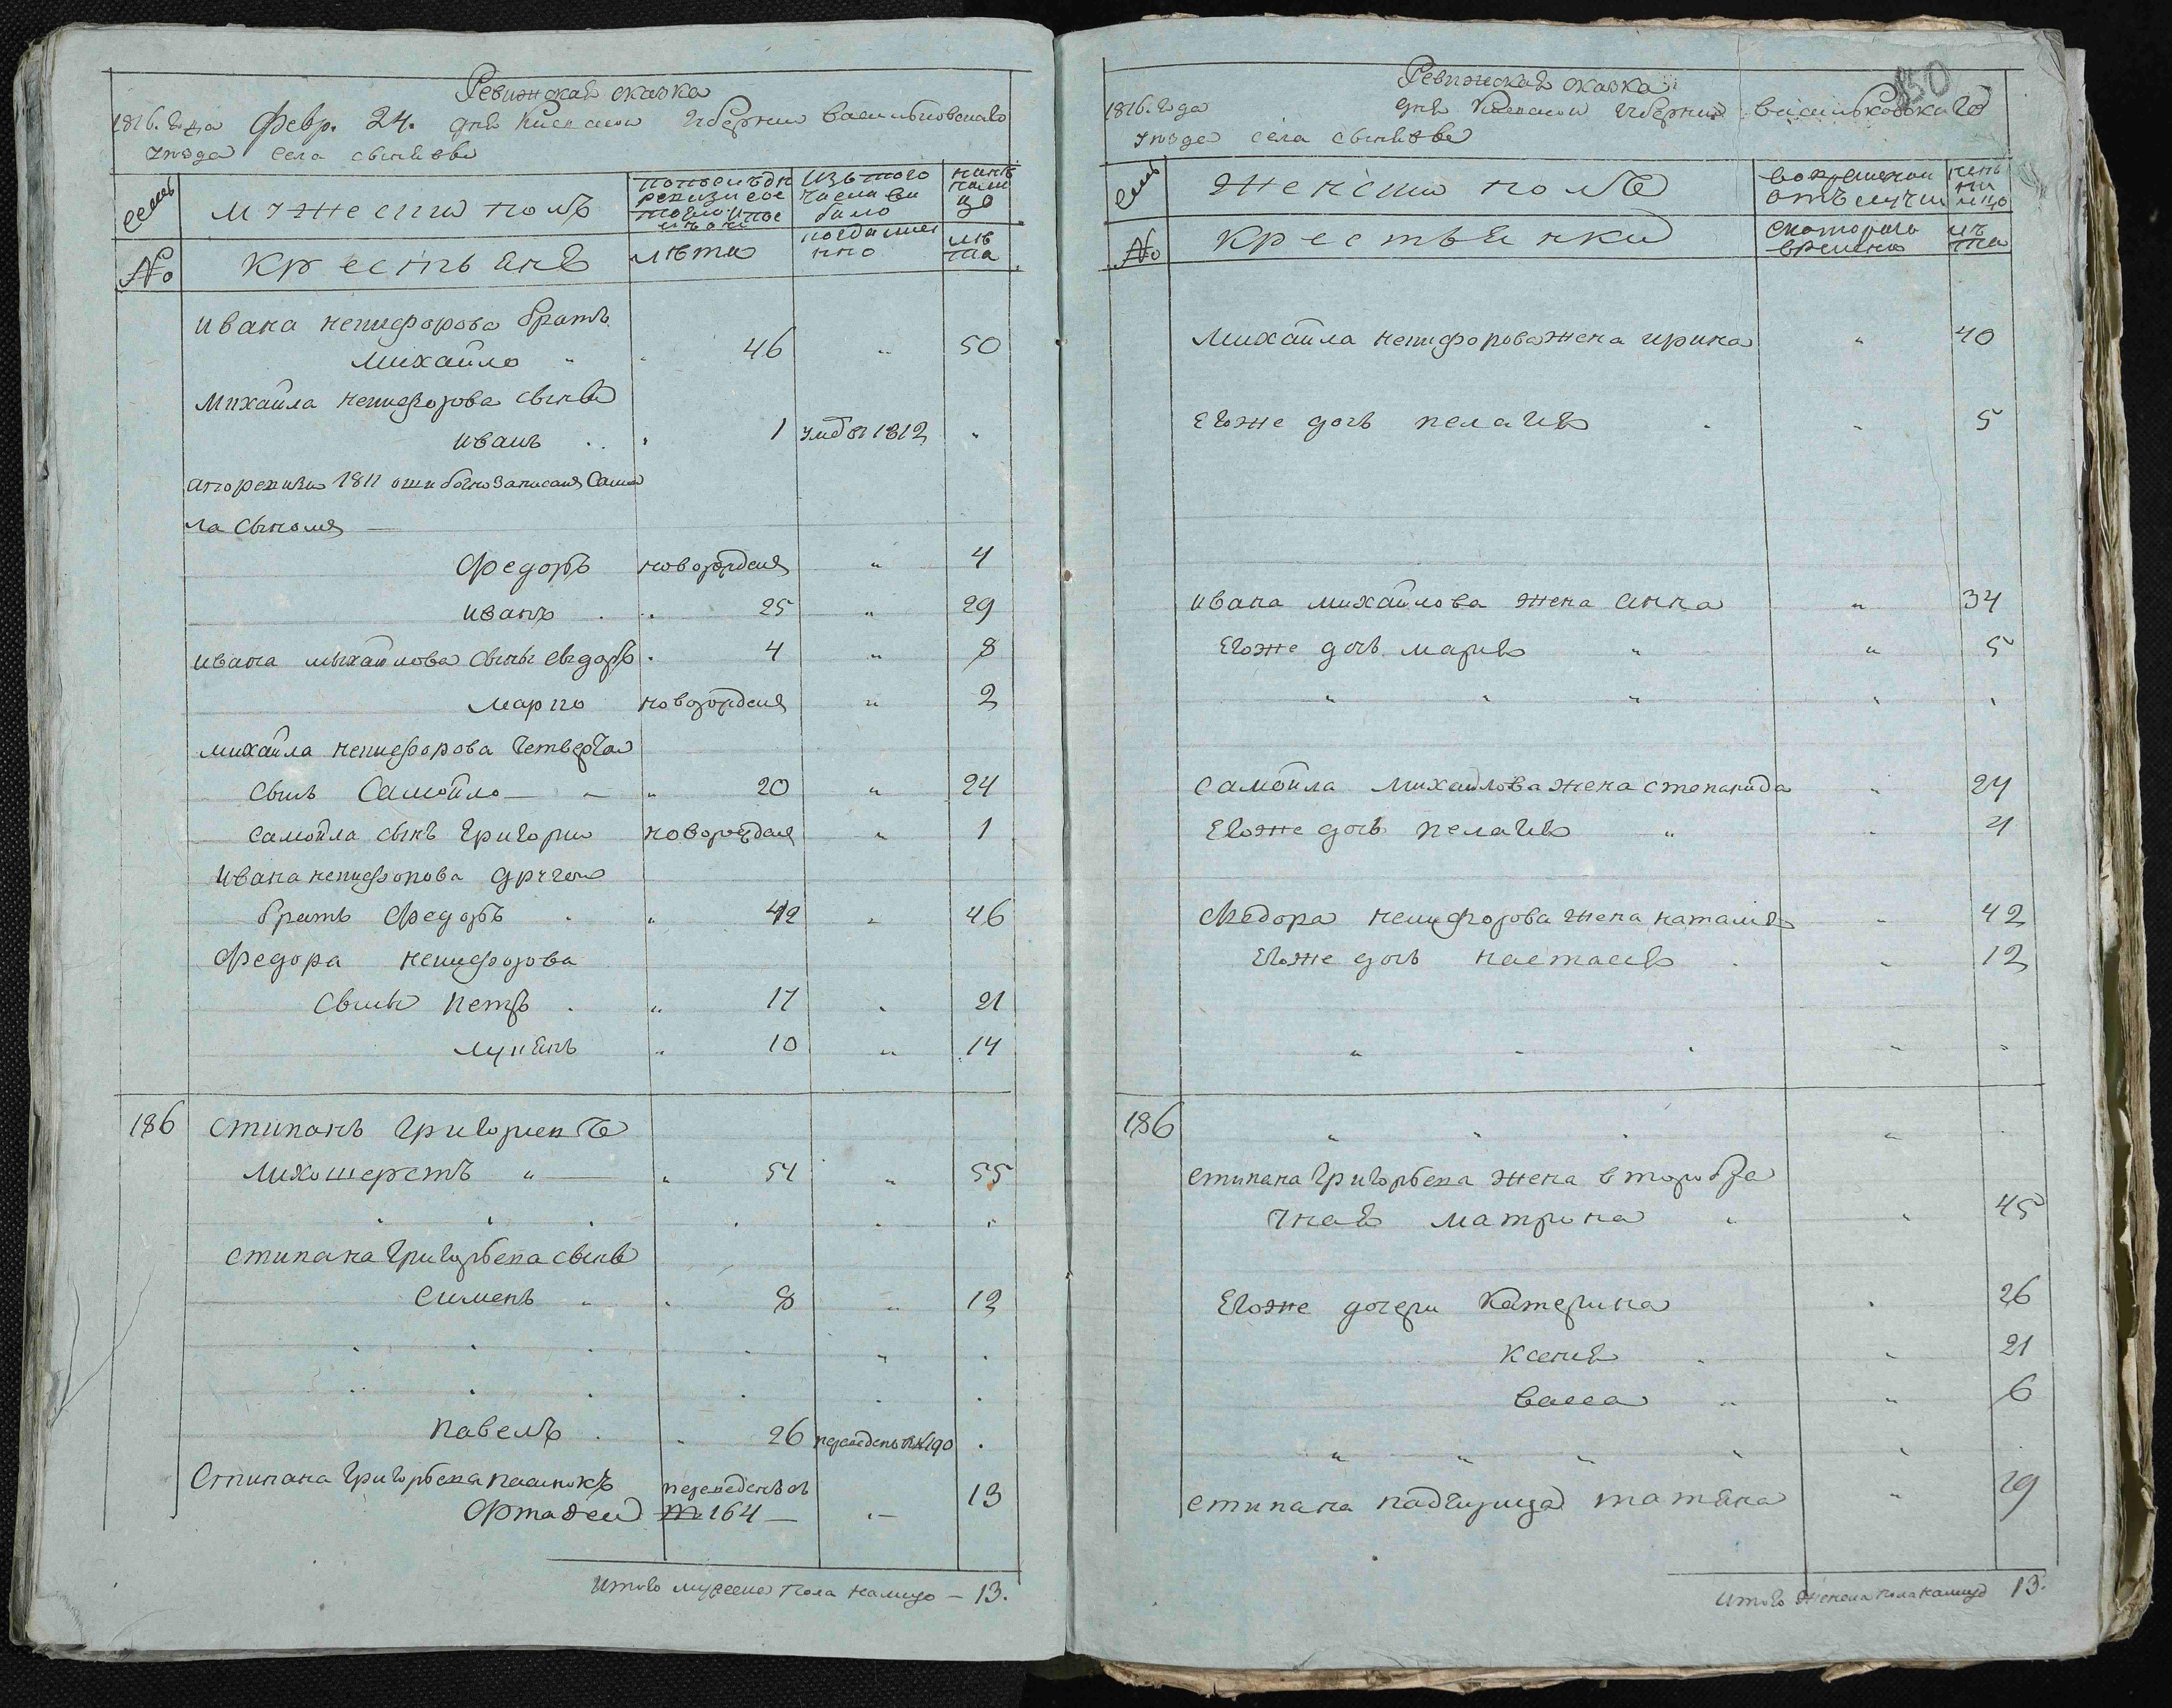 Ревижская сказка
1816. года Февр. 24. дня Киевской губернии Васильковскаго
уезда села
семьи
мужески полъ
лѣта
№
крестьяне
Ивана Никифорова братъ
Михайло " " 46 " 50
Михайла Никифорова сыны
Иванъ . . 1 умдвъ 1812 "
ошибочно записанъ Самой
ла сыномъ —
Федоръ новорожденъ " 4
Иванъ . " 25 " 29
Ивана Михайлова сыны Сидоръ . 4 " 8
Марко новорожденъ " 2
Михайла Никифорова четвертой
сынъ Самойло — " 20 " 24
Самойла сынъ Григорий новорожденъ " 1
Ивана Никифорова другой
братъ Федоръ . " 42 " 46
Федора Никифорова
сыны Петръ . " 17 " 21
Лукянъ " 10 " 14
186 Стипанъ Григориевъ
Лихошерстъ " — " 51 " 55
Стипана Григорьева сыны
Сименъ " " 8 " 12
Павелъ . " 26 переведенъ 190 .
Стипана Григорьева пасынокъ переведенъ
Фтадей 164 — " — 13
Итого мужеска пола налицо — 13.
150
Ревижская сказка
1816. года дня Киевской губернии Васильковскаго
уезда села
семьи
женски полъ
во временной отлучки
№
крестьянки
с котораго времени
лѣта
Михайла Никифорова жена Ирина " 40
Егоже дочь Пелагия " " 5
Ивана Михайлова жена Анна " 34
Егоже дочь Мария " " 5
" " " " "
Самойла Михайлова жена Степанида " 24
Егоже дочь Пелагия " " 4
Федора Никифорова жена Наталия " 42
Егоже дочь Настасия . " 12
" " " " "
186 " " " " .
Стипана Григорьева жена второбра
чная Матрина " " 45
Егоже дочери Катерина " 26
Ксения . " 21
Васса " " 6
" " " " " .
Стипана падчерица Татяна " 19
Итого женска пола налицо 13.